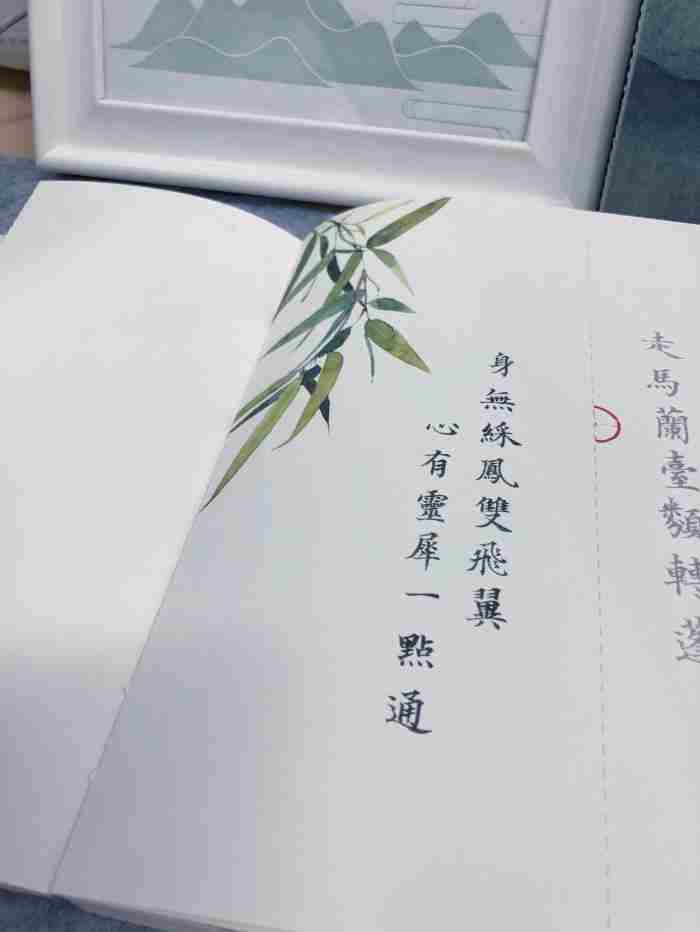 走馬蘭臺類轉蓬
身無綵鳳雙飛翼
心有靈犀一點通